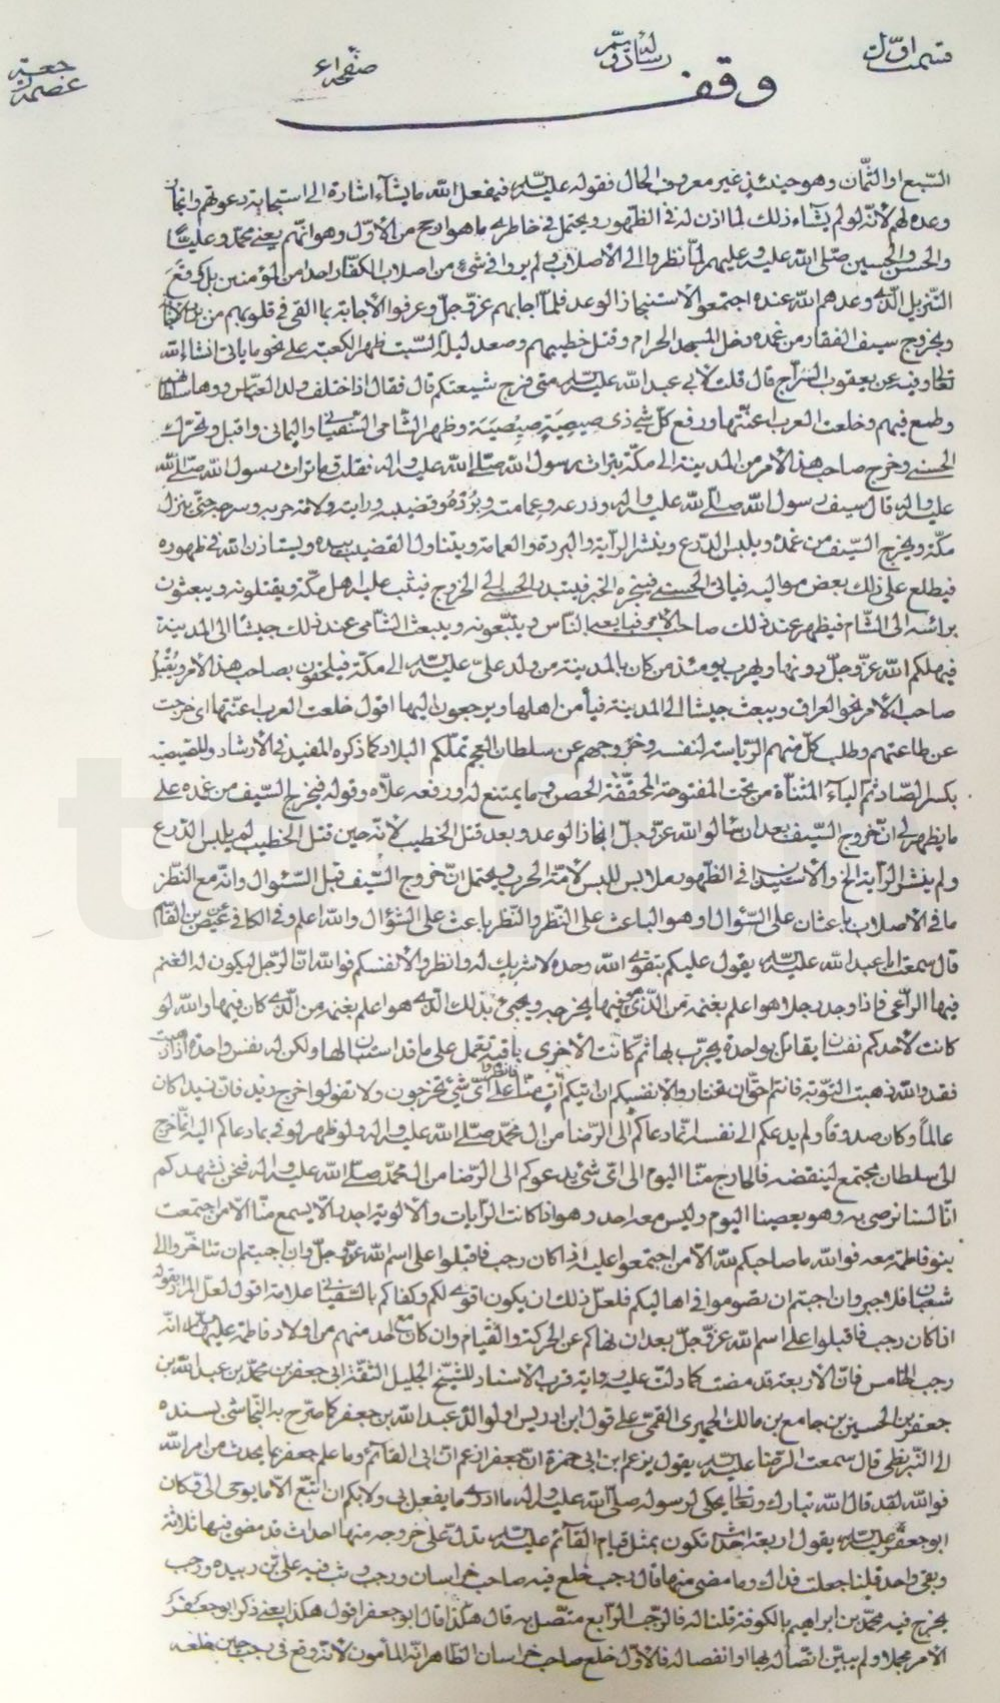 قسمت اوّل
رسالة في
صفحه ٦١
جعبه
وقف
السّبع او الثّمان وهو حينئذٍ غير معروف الحال فقوله عليه السّلم فيفعل الله ما يشاء اشارة الى استجابة دعوتهم وانجاز
وعده لهم لانّه لو لم يشاء ذلك لما اذن له في الظّهور ويحتمل في خاطري ما هو ارجح من الاوّل وهو انّهم يعني محمّد وعليّا
والحسن والحسين صلّى الله عليه وعليهم لمّا نظروا الى الاصلاب ولم يروا في شئ من اصلاب الكفّار احدا من المؤمنين بل كوقع
التّنزيل الّذي وعدهم الله عنده اجتمعوا لاستنجاز الوعد فلمّا اجابهم عزّ وجلّ وعرفوا الاجابة بما القى في قلوبهم من
وبخروج سيف الفقار من غمده دخل المسجد الحرام وقتل خطيبهم وصعد ليلة السّبت ظهر الكعبة على نحو ما يأتى انشاء الله
تعالى وفيه عن يعقوب السّرّاج قال قلت لابى عبد الله عليه السّلم متى فرج شيعتكم قال فقال اذا اختلف ولد العبّاس ووها سلطانهم
وطمع فيهم وخلعت العرب اعنّتها ورفع كلّ شئ ذى صيصيةٍ صيصيته وظهر الشّامى السّفيانى واليمانى واقبل وتحرّك
الحسنى وخرج صاحب هذا الامر من المدينة الى مكّة بتراث رسول الله صلّى الله عليه واله فقلت فما تراث رسول الله صلّى الله
عليه واله قال سيف رسول الله صلّى الله عليه واله ودرعه وعمامته وبرده وقضيبه ورايته ولامة حربه وسرجه حتّى ينزل
مكّة ويخرج السّيف من غمده ويلبس الدّرع وينشر الرّاية والبردة والعمامة ويتناول القضيب بيده ويستاذن الله في ظهوره
فيطلع على ذلك بعض مواليه فيأتى الحسنى فيخبره الخبر فيبتدر الحسنى الى الخروج فيثب عليه اهل مكّة ويقتلونه ويبعثون
برأسه الى الشّام فيظهر عند ذلك صاحب الامر فيبايعه النّاس ويتّبعونه ويبعث الشّامى عند ذلك جيشا الى المدينة
فيهلكهم الله عزّ وجلّ دونها ويهرب يومئذ من كان بالمدينة من ولد علىّ عليه السّلم الى مكّة فيلحقون بصاحب هذا الامر ويُقبل
صاحب الامر نحو العراق ويبعث جيشا الى المدينة فيأمن اهلها ويرجعون اليها اقول خلعت العرب اعنّتها اى خرجت
عن طاعتهم وطلب كلّ منهم الرّياسة لنفسه وخروجهم عن سلطان العجم تملّكهم البلاد كما ذكره المفيد في الارشاد والصّيصيه
بكسر الصّاد ثم الياء المثنّاة من تحت المفتوحة المخفّفة الحصن وما يمتنع له ورفعه علاه وقوله فيخرج السّيف من غمده على
ما يظهر لي انّ خروج السّيف بعد ان سألوا الله عزّ وجلّ انجاز الوعد وبعد قتل الخطيب لانّه حين قتل الخطيب لم يلبس الدّرع
ولم ينشر الرّاية الخ والاستيذان في الظّهور ملابس للبس لامة الحرب ويحتمل انّ خروج السّيف قبل السّئوال وانّه مع النّظر
ما في الاصلاب باعثان على السّئوال او هو الباعث على النّظر والنّظر باعث على السّئوال والله اعلم وفي الكافى عن عيص بن القاسم
قال سمعت ابا عبد الله عليه السّلم يقول عليكم بتقوى الله وحده لا شريك له وانظروا لانفسكم فوالله انّ الرّجل ليكون له الغنم
فيها الرّاعى فاذا وجد رجلا هو اعلم بغنمه من الّذى هو فيها يخرجه ويجئ بذلك الّذى هو اعلم بغنمه من الّذى كان فيها والله لو
كانت لاحدكم نفسان يقاتل بواحدة يجرّب بها ثم كانت الاخرى باقية تعمل على ما قد استبان لها ولكن له نفس واحدة اذا ذهبت
فقد والله ذهبت التّوبة فانتم احقّ ان تختاروا لانفسكم ان اتيكم آتٍ منّا فانظروا على اىّ شئ تخرجون ولا تقولوا خرج زيد فانّ زيدا كان
عالماً وكان صدوقاً ولم يدعكم الى نفسه انّما دعاكم الى الرّضا من ال محمّد صلّى الله عليه واله ولو ظهر لوفى بما دعاكم اليه انّما خرج
الى سلطان مجتمع لينقضه فالخارج منّا اليوم الى اىّ شئ يدعوكم الى الرّضا من ال محمّد صلّى الله عليه واله فنحن نشهدكم
انّا لسنا نرضى به وهو يعصينا اليوم وليس معه احد وهو اذا كانت الرّايات والالوية اجدر الّا يسمع منّا الّا من اجتمعت
بنو فاطمة معه فوالله ما صاحبكم الّا من اجتمعوا عليه اذا كان رجب فاقبلوا على اسم الله عزّ وجلّ وان احببتم ان تتأخّروا الى
شعبان فلا ضير وان احببتم ان تصوموا في اهاليكم فلعلّ ذلك ان يكون اقوى لكم وكفاكم بالسّفيانى علامة اقول لعلّ المراد بقوله
اذا كان رجب فاقبلوا على اسم الله عزّ وجلّ بعد ان نهاكم عن الحركة والقيام وان كان مع احد منهم من اولاد فاطمة عليها السّلم انّه
رجب الخامس فانّ الاربعة قد مضت كما دلّت عليه رواية قرب الاسناد للشّيخ الجليل الثّقة ابى جعفر بن محمّد بن عبد الله بن
جعفر بن الحسين بن جامع بن مالك الحميرى القمّى على قول ابن ادريس او لوالده عبد الله بن جعفر كما صرّح به النّجاشى بسنده
الى البزنطى قال سمعت الرّضا عليه السّلم يقول يزعم ابن ابى حمزة انّ جعفرا زعم انّ ابى القائم وما علم جعفر بما يحدث من امر الله
فوالله لقد قال الله تبارك وتعالى يحكى لرسوله صلّى الله عليه واله ما ادرى ما يفعل بى ولا بكم ان اتّبع الّا ما يوحى الىّ وكان
ابو جعفر عليه السّلم يقول اربعة احداث تكون بمثل قيام القائم عليه السّلم تدلّ على خروجه منها احداث قد مضى فيها ثلاثة
وبقى واحد قلنا جعلت فداك وما مضى منها قال رجب خلع فيه صاحب خراسان ورجب وثب فيه على بن زبيده ورجب
يخرج فيه محمّد بن ابراهيم بالكوفة قلنا له فالرّجب الرّابع متّصل به قال هكذا قال ابو جعفر اقول هكذا يعنى ذكر ابو جعفر
الامر مجملا ولم يبيّن اتّصاله بها او انفصاله فالاوّل خلع صاحب خراسان الظّاهر انّه المأمون لانّه وقع في رجب حين خلعه